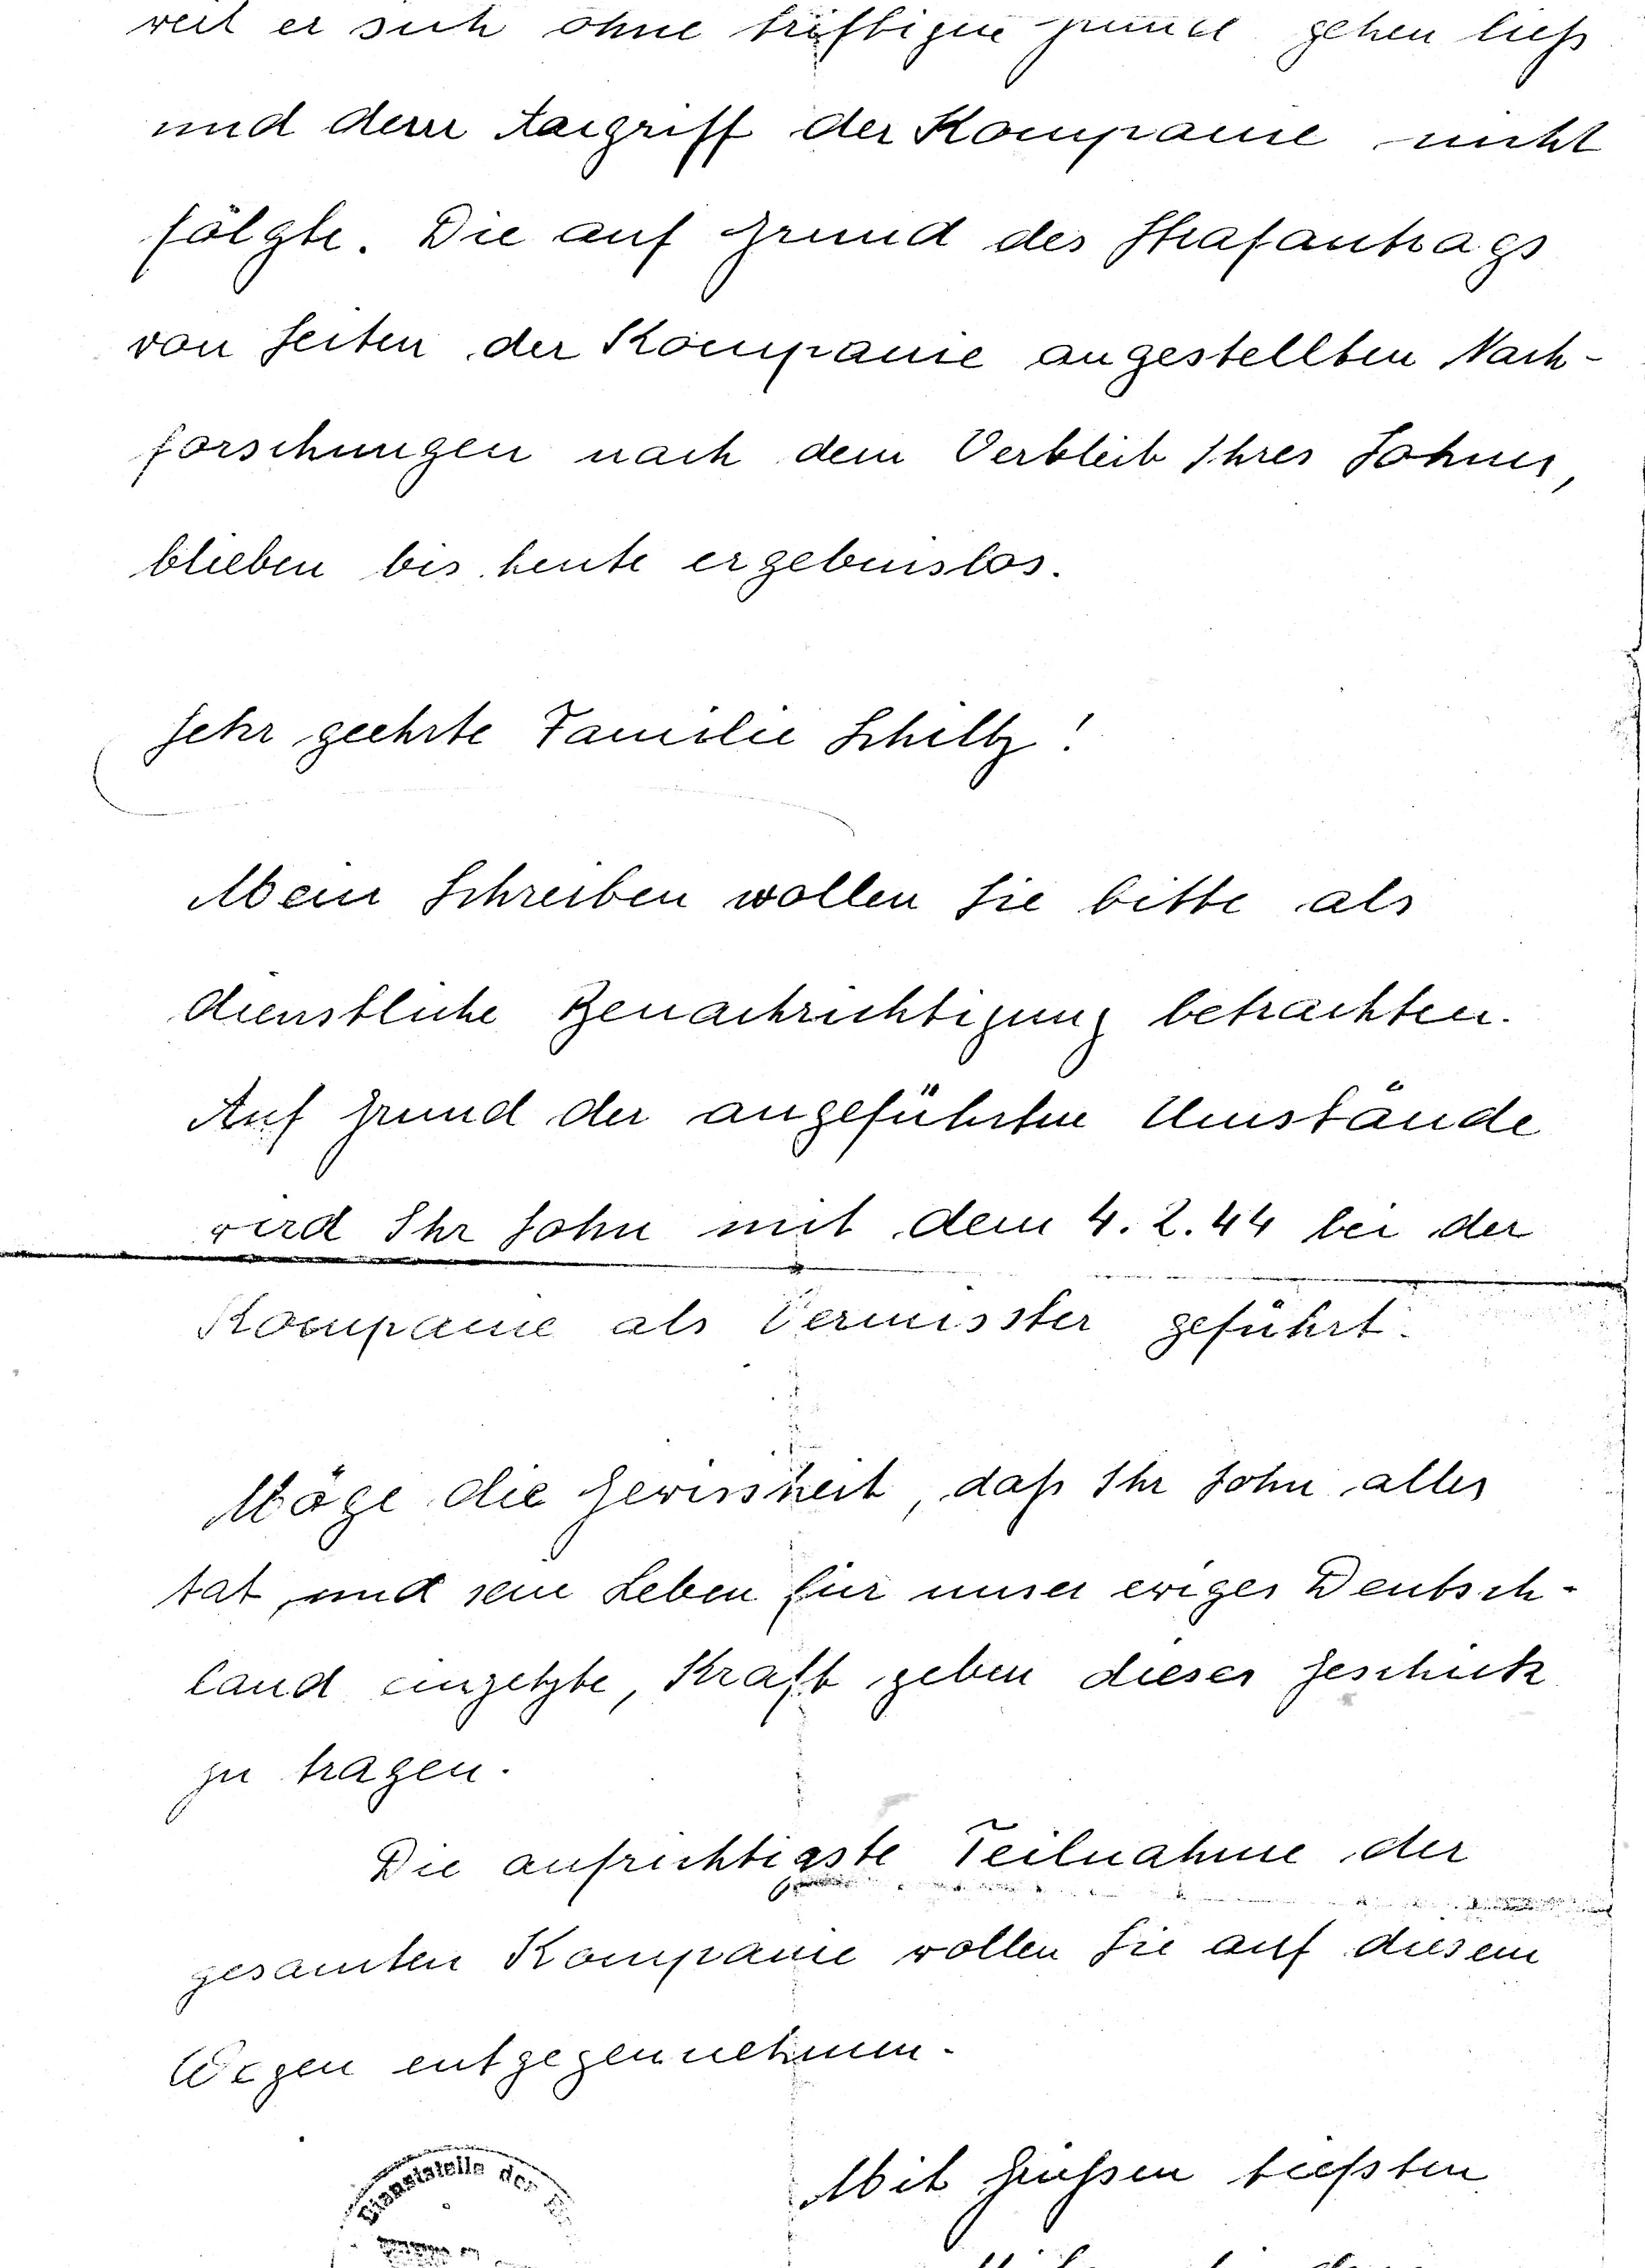 weil er sich ohne triftigen Grund gehen ließ
und dem Angriff der Kompanie nicht
folgte. Die auf Grund des Strafantrags
von Seiten der Kompanie angestellten Nach-
forschungen nach dem Verbleib Ihres Sohnes,
blieben bis heute ergebnislos.
Sehr geehrte Familie Schiltz!
Mein Schreiben wollen Sie bitte als
dienstliche Benachrichtigung betrachten.
Auf Grund der angeführten Umstände
wird Ihr Sohn mit dem 4.2.44 bei der
Kompanie als Vermisster geführt.
Möge die Gewissheit, daß Ihr Sohn alles
tat, und sein Leben für unser ewiges Deutsch-
land einsetzte, Kraft geben dieses Geschick
zu tragen.
Die aufrichtigste Teilnahme der
gesamten Kompanie wollen Sie auf diesem
Wegen entgegennehmen.
Dienststelle der
Mit Grüßen tiefsten